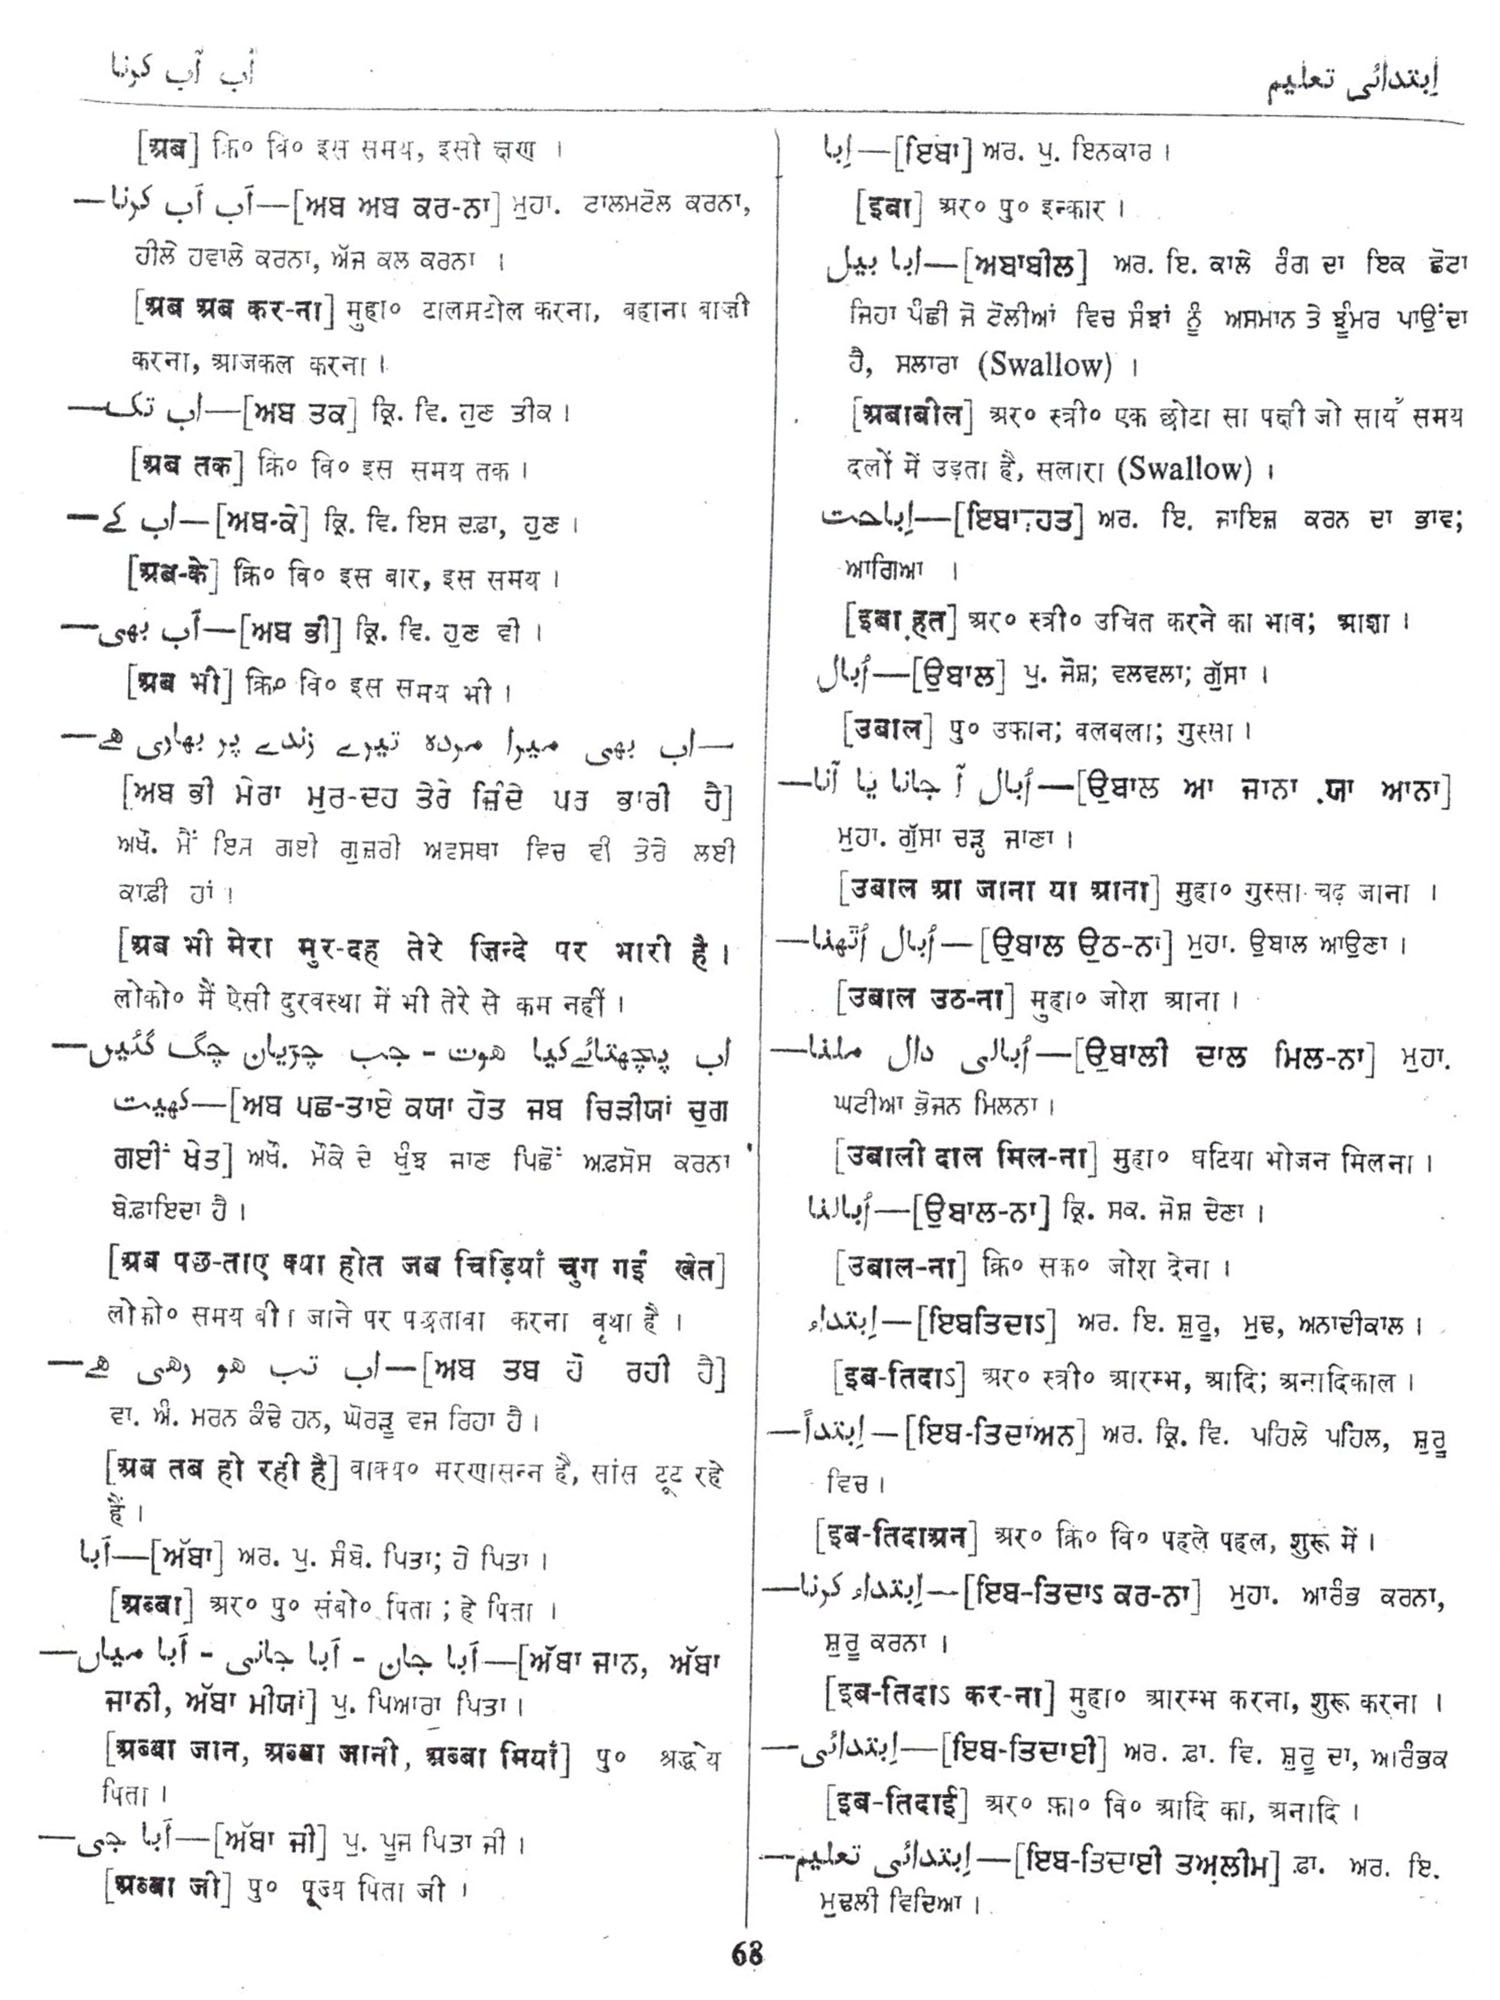 اَب آب کرنا
اِبتدائی تعلیم
[अब] क्रि० वि० इस समय, इसी क्षण ।
—اَب اَب کرنا—[ਅਬ ਅਬ ਕਰ-ਨਾ] ਮੁਹਾ. ਟਾਲਮਟੋਲ ਕਰਨਾ,
ਹੀਲੇ ਹਵਾਲੇ ਕਰਨਾ, ਅੱਜ ਕਲ ਕਰਨਾ ।
[अब अब कर-ना] मुहा० टालमटोल करना, बहाना बाज़ी
करना, आजकल करना ।
—اب تک—[ਅਬ ਤਕ] ਕ੍ਰਿ. ਵਿ. ਹੁਣ ਤੀਕ ।
[अब तक] क्रि० वि० इस समय तक ।
—اب کے—[ਅਬ-ਕੇ] ਕ੍ਰਿ. ਵਿ. ਇਸ ਦਫ਼ਾ, ਹੁਣ ।
[अब-के] क्रि० वि० इस बार, इस समय ।
—اَب بھی—[ਅਬ ਭੀ] ਕ੍ਰਿ. ਵਿ. ਹੁਣ ਵੀ ।
[अब भी] क्रि० वि० इस समय भी ।
—اب بھی میرا مردہ تیرے زندے پر بھاری ہے—
[ਅਬ ਭੀ ਮੇਰਾ ਮੁਰ-ਦਹ ਤੇਰੇ ਜ਼ਿੰਦੇ ਪਰ ਭਾਰੀ ਹੈ]
ਅਖੌ. ਮੈਂ ਇਸ ਗਈ ਗੁਜ਼ਰੀ ਅਵਸਥਾ ਵਿਚ ਵੀ ਤੇਰੇ ਲਈ
ਕਾਫ਼ੀ ਹਾਂ ।
[अब भी मेरा मुर-दह तेरे ज़िन्दे पर भारी है ।
लोको० मैं ऐसी दुरवस्था में भी तेरे से कम नहीं ।
—اب پچھتائے کیا ھوت - جب چڑیاں چگ گئیں
کھیت—[ਅਬ ਪਛ-ਤਾਏ ਕਯਾ ਹੋਤ ਜਬ ਚਿੜੀਯਾਂ ਚੁਗ
ਗਈਂ ਖੇਤ] ਅਖੌ. ਮੌਕੇ ਦੇ ਖੁੰਝ ਜਾਣ ਪਿਛੋਂ ਅਫ਼ਸੋਸ ਕਰਨਾ
ਬੇਫ਼ਾਇਦਾ ਹੈ ।
[अब पछ-ताए क्या होत जब चिड़ियाँ चुग गईं खेत]
लोको० समय बीत जाने पर पछतावा करना वृथा है ।
—اب تب ھو رھی ہے—[ਅਬ ਤਬ ਹੋ ਰਹੀ ਹੈ]
ਵਾ. ਅੰ. ਮਰਨ ਕੰਢੇ ਹਨ, ਘੋਰੜੂ ਵਜ ਰਿਹਾ ਹੈ ।
[अब तब हो रही है] वाक्य० मरणासन्न है, सांस टूट रहे
हैं ।
اَبا—[ਅੱਬਾ] ਅਰ. ਪੁ. ਸੰਬੋ. ਪਿਤਾ; ਹੇ ਪਿਤਾ ।
[अब्बा] अर० पु० संबो० पिता ; हे पिता ।
—اَبا جان - اَبا جانی - اَبا میاں—[ਅੱਬਾ ਜਾਨ, ਅੱਬਾ
ਜਾਨੀ, ਅੱਬਾ ਮੀਯਾਂ] ਪੁ. ਪਿਆਰਾ ਪਿਤਾ ।
[अब्बा जान, अब्बा जानी, अब्बा मियाँ] पु० श्रद्धेय
पिता ।
—اَبا جی—[ਅੱਬਾ ਜੀ] ਪੁ. ਪੂਜ ਪਿਤਾ ਜੀ ।
[अब्बा जी] पु० पूज्य पिता जी ।
اِبا—[ਇਬਾ] ਅਰ. ਪੁ. ਇਨਕਾਰ ।
[इबा] अर० पु० इन्कार ।
ابا بیل—[ਅਬਾਬੀਲ] ਅਰ. ਇ. ਕਾਲੇ ਰੰਗ ਦਾ ਇਕ ਛੋਟਾ
ਜਿਹਾ ਪੰਛੀ ਜੋ ਟੋਲੀਆਂ ਵਿਚ ਸੰਝਾਂ ਨੂੰ ਅਸਮਾਨ ਤੇ ਝੂੰਮਰ ਪਾਉਂਦਾ
ਹੈ, ਸਲਾਰਾ (Swallow) ।
[अबाबील] अर० स्त्री० एक छोटा सा पक्षी जो सायँ समय
दलों में उड़ता है, सलारा (Swallow) ।
اِباحت—[ਇਬਾਹਤ] ਅਰ. ਇ. ਜਾਇਜ਼ ਕਰਨ ਦਾ ਭਾਵ;
ਆਗਿਆ ।
[इबाहत] अर० स्त्री० उचित करने का भाव; आज्ञा ।
اُبال—[ਉਬਾਲ] ਪੁ. ਜੋਸ਼; ਵਲਵਲਾ; ਗੁੱਸਾ ।
[उबाल] पु० उफान; वलवला; गुस्सा ।
—اُبال آ جانا یا آنا—[ਉਬਾਲ ਆ ਜਾਨਾ ਯਾ ਆਨਾ]
ਮੁਹਾ. ਗੁੱਸਾ ਚੜ੍ਹ ਜਾਣਾ ।
[उबाल आ जाना या आना] मुहा० गुस्सा चढ़ जाना ।
—اُبال اُٹھنا—[ਉਬਾਲ ਉਠ-ਨਾ] ਮੁਹਾ. ਉਬਾਲ ਆਉਣਾ ।
[उबाल उठ-ना] मुहा० जोश आना ।
—اُبالی دال ملنا—[ਉਬਾਲੀ ਦਾਲ ਮਿਲ-ਨਾ] ਮੁਹਾ.
ਘਟੀਆ ਭੋਜਨ ਮਿਲਨਾ ।
[उबाली दाल मिल-ना] मुहा० घटिया भोजन मिलना ।
اُبالنا—[ਉਬਾਲ-ਨਾ] ਕ੍ਰਿ. ਸਕ. ਜੋਸ਼ ਦੇਣਾ ।
[उबाल-ना] क्रि० सक० जोश देना ।
اِبتداء—[ਇਬਤਿਦਾ਽] ਅਰ. ਇ. ਸ਼ੁਰੂ, ਮੁਢ, ਅਨਾਦੀਕਾਲ ।
[इब-तिदाऽ] अर० स्त्री० आरम्भ, आदि; अनादिकाल ।
—اِبتداً—[ਇਬ-ਤਿਦਾਅਨ] ਅਰ. ਕ੍ਰਿ. ਵਿ. ਪਹਿਲੇ ਪਹਿਲ, ਸ਼ੁਰੂ
ਵਿਚ ।
[इब-तिदाअन] अर० क्रि० वि० पहले पहल, शुरू में ।
—اِبتداء کرنا—[ਇਬ-ਤਿਦਾ਽ ਕਰ-ਨਾ] ਮੁਹਾ. ਆਰੰਭ ਕਰਨਾ,
ਸ਼ੁਰੂ ਕਰਨਾ ।
[इब-तिदाऽ कर-ना] मुहा० आरम्भ करना, शुरू करना ।
—اِبتدائی—[ਇਬ-ਤਿਦਾਈ] ਅਰ. ਫ਼ਾ. ਵਿ. ਸ਼ੁਰੂ ਦਾ, ਆਰੰਭਕ
[इब-तिदाई] अर० फ़ा० वि० आदि का, अनादि ।
—اِبتدائی تعلیم—[ਇਬ-ਤਿਦਾਈ ਤਅਲੀਮ] ਫ਼ਾ. ਅਰ. ਇ.
ਮੁਢਲੀ ਵਿਦਿਆ ।
68